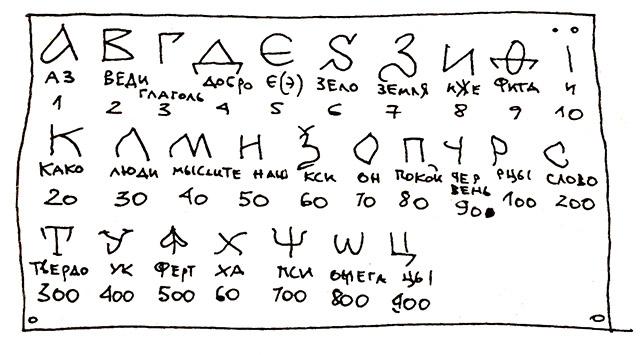 А В Г Д Є Ѕ З И Ѳ Ї
АЗ ВЕДИ ГЛАГОЛЬ ДОБРО Є(Э) ЗЕЛО ЗЕМЛЯ ИЖЕ ФИТА И
1 2 3 4 5 6 7 8 9 10
К Л М Н Ѯ О П Ч Р С
КАКО ЛЮДИ МЫСЛИТЕ НАШ КСИ ОН ПОКОЙ ЧЕРВЕНЬ РЦЫ СЛОВО
20 30 40 50 60 70 80 90. 100 200
Т У Ф Х Ѱ Ѡ Ц
ТВЕРДО УК ФЕРТ ХА ПСИ ОМЕГА ЦЫ
300 400 500 60 700 800 900